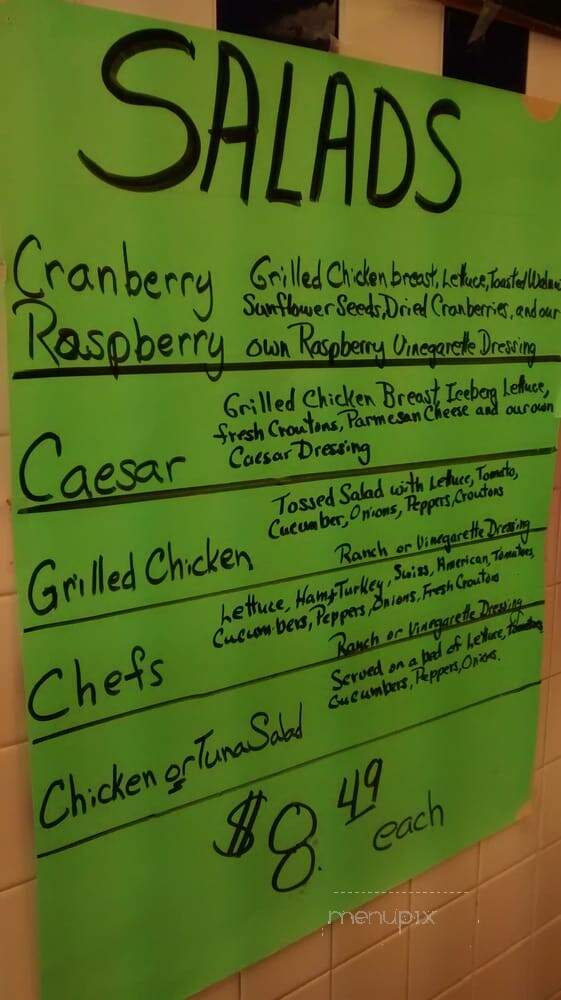 SALADS
Cranberry Grilled Chicken breast, Lettuce, Toasted
Sunflower Seeds, Dried Cranberries, and our
Raspberry own Raspberry Vinegarette Dressing
Grilled Chicken Breast, Iceberg Lettuce,
fresh Croutons, Parmesan Cheese and our own
Caesar Caesar Dressing
Tossed Salad with Lettuce, Tomato,
Cucumber, Onions, Peppers, Croutons
Grilled Chicken Ranch or Vinegarette Dressing
Lettuce, Ham, Turkey, Swiss, American, Tomatoes,
Cucumbers, Peppers, Onions, Fresh Croutons
Chefs Ranch or Vinegarette Dressing
Served on a bed of Lettuce, Tomatoes,
Cucumbers, Peppers, Onions.
Chicken or Tuna Salad
$8.49 each
menupix